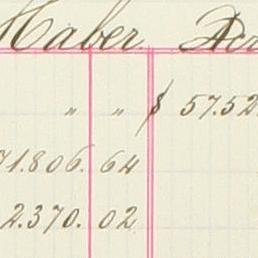 Haber
" " $ 57.52
71.806. 64
2.370. 02